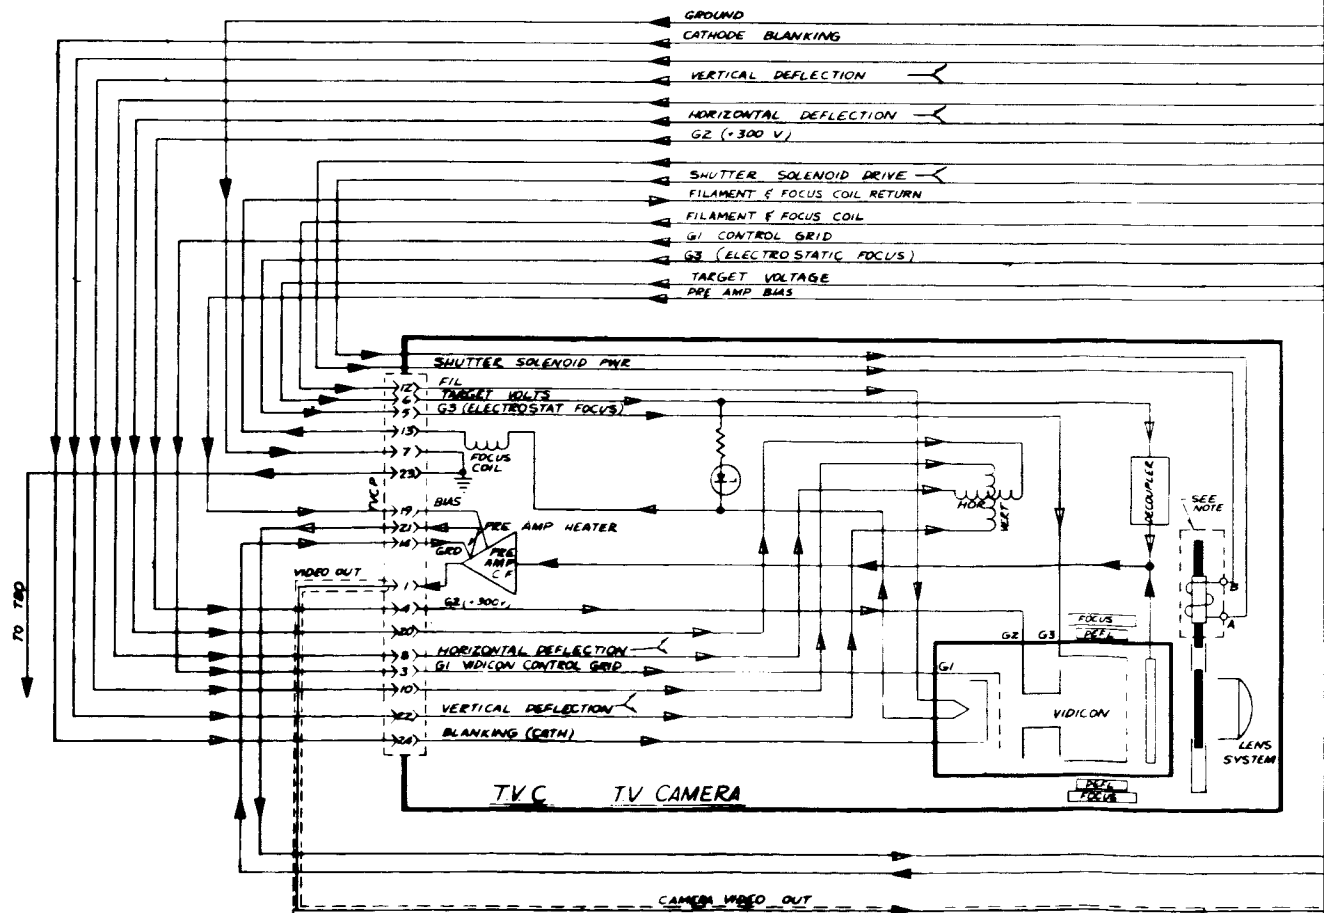 GROUND
CATHODE BLANKING
VERTICAL DEFLECTION
HORIZONTAL DEFLECTION
G2 (+300 V)
SHUTTER SOLENOID DRIVE
FILAMENT & FOCUS COIL RETURN
FILAMENT & FOCUS COIL
G1 CONTROL GRID
G3 (ELECTROSTATIC FOCUS)
TARGET VOLTAGE
PRE AMP BIAS
SHUTTER SOLENOID PWR
12 FIL
6 TARGET VOLTS
5 G3 (ELECTROSTAT FOCUS)
13
7
23
FOCUS
COIL
TVCP
19 BIAS
21 PRE AMP HEATER
14 GRD
PRE
AMP
C.F
HOR
VERT
DECOUPLER
SEE
NOTE
B
A
VIDEO OUT
1
4 G2 (+300V)
20
8 HORIZONTAL DEFLECTION
3 G1 VIDICON CONTROL GRID
10
22 VERTICAL DEFLECTION
24 BLANKING (CATH)
TO TBD
FOCUS
DEFL
G2 G3
G1
VIDICON
DEFL
FOCUS
LENS
SYSTEM
TVC TV CAMERA
CAMERA VIDEO OUT